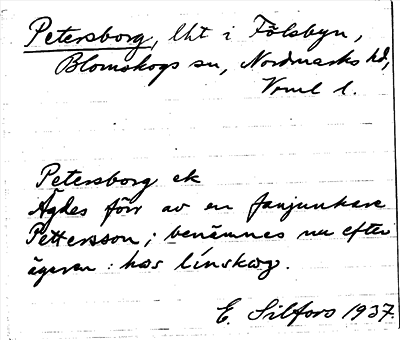 Petersborg, lht i Fölsbyn,
Blomskogs sn, Nordmarks hd,
Vrml l.
Petersborg ek
Ägdes förr av en fanjunkare
Pettersson; benämnes nu efter
ägaren: hos línskog.
E. Silfors 1937.